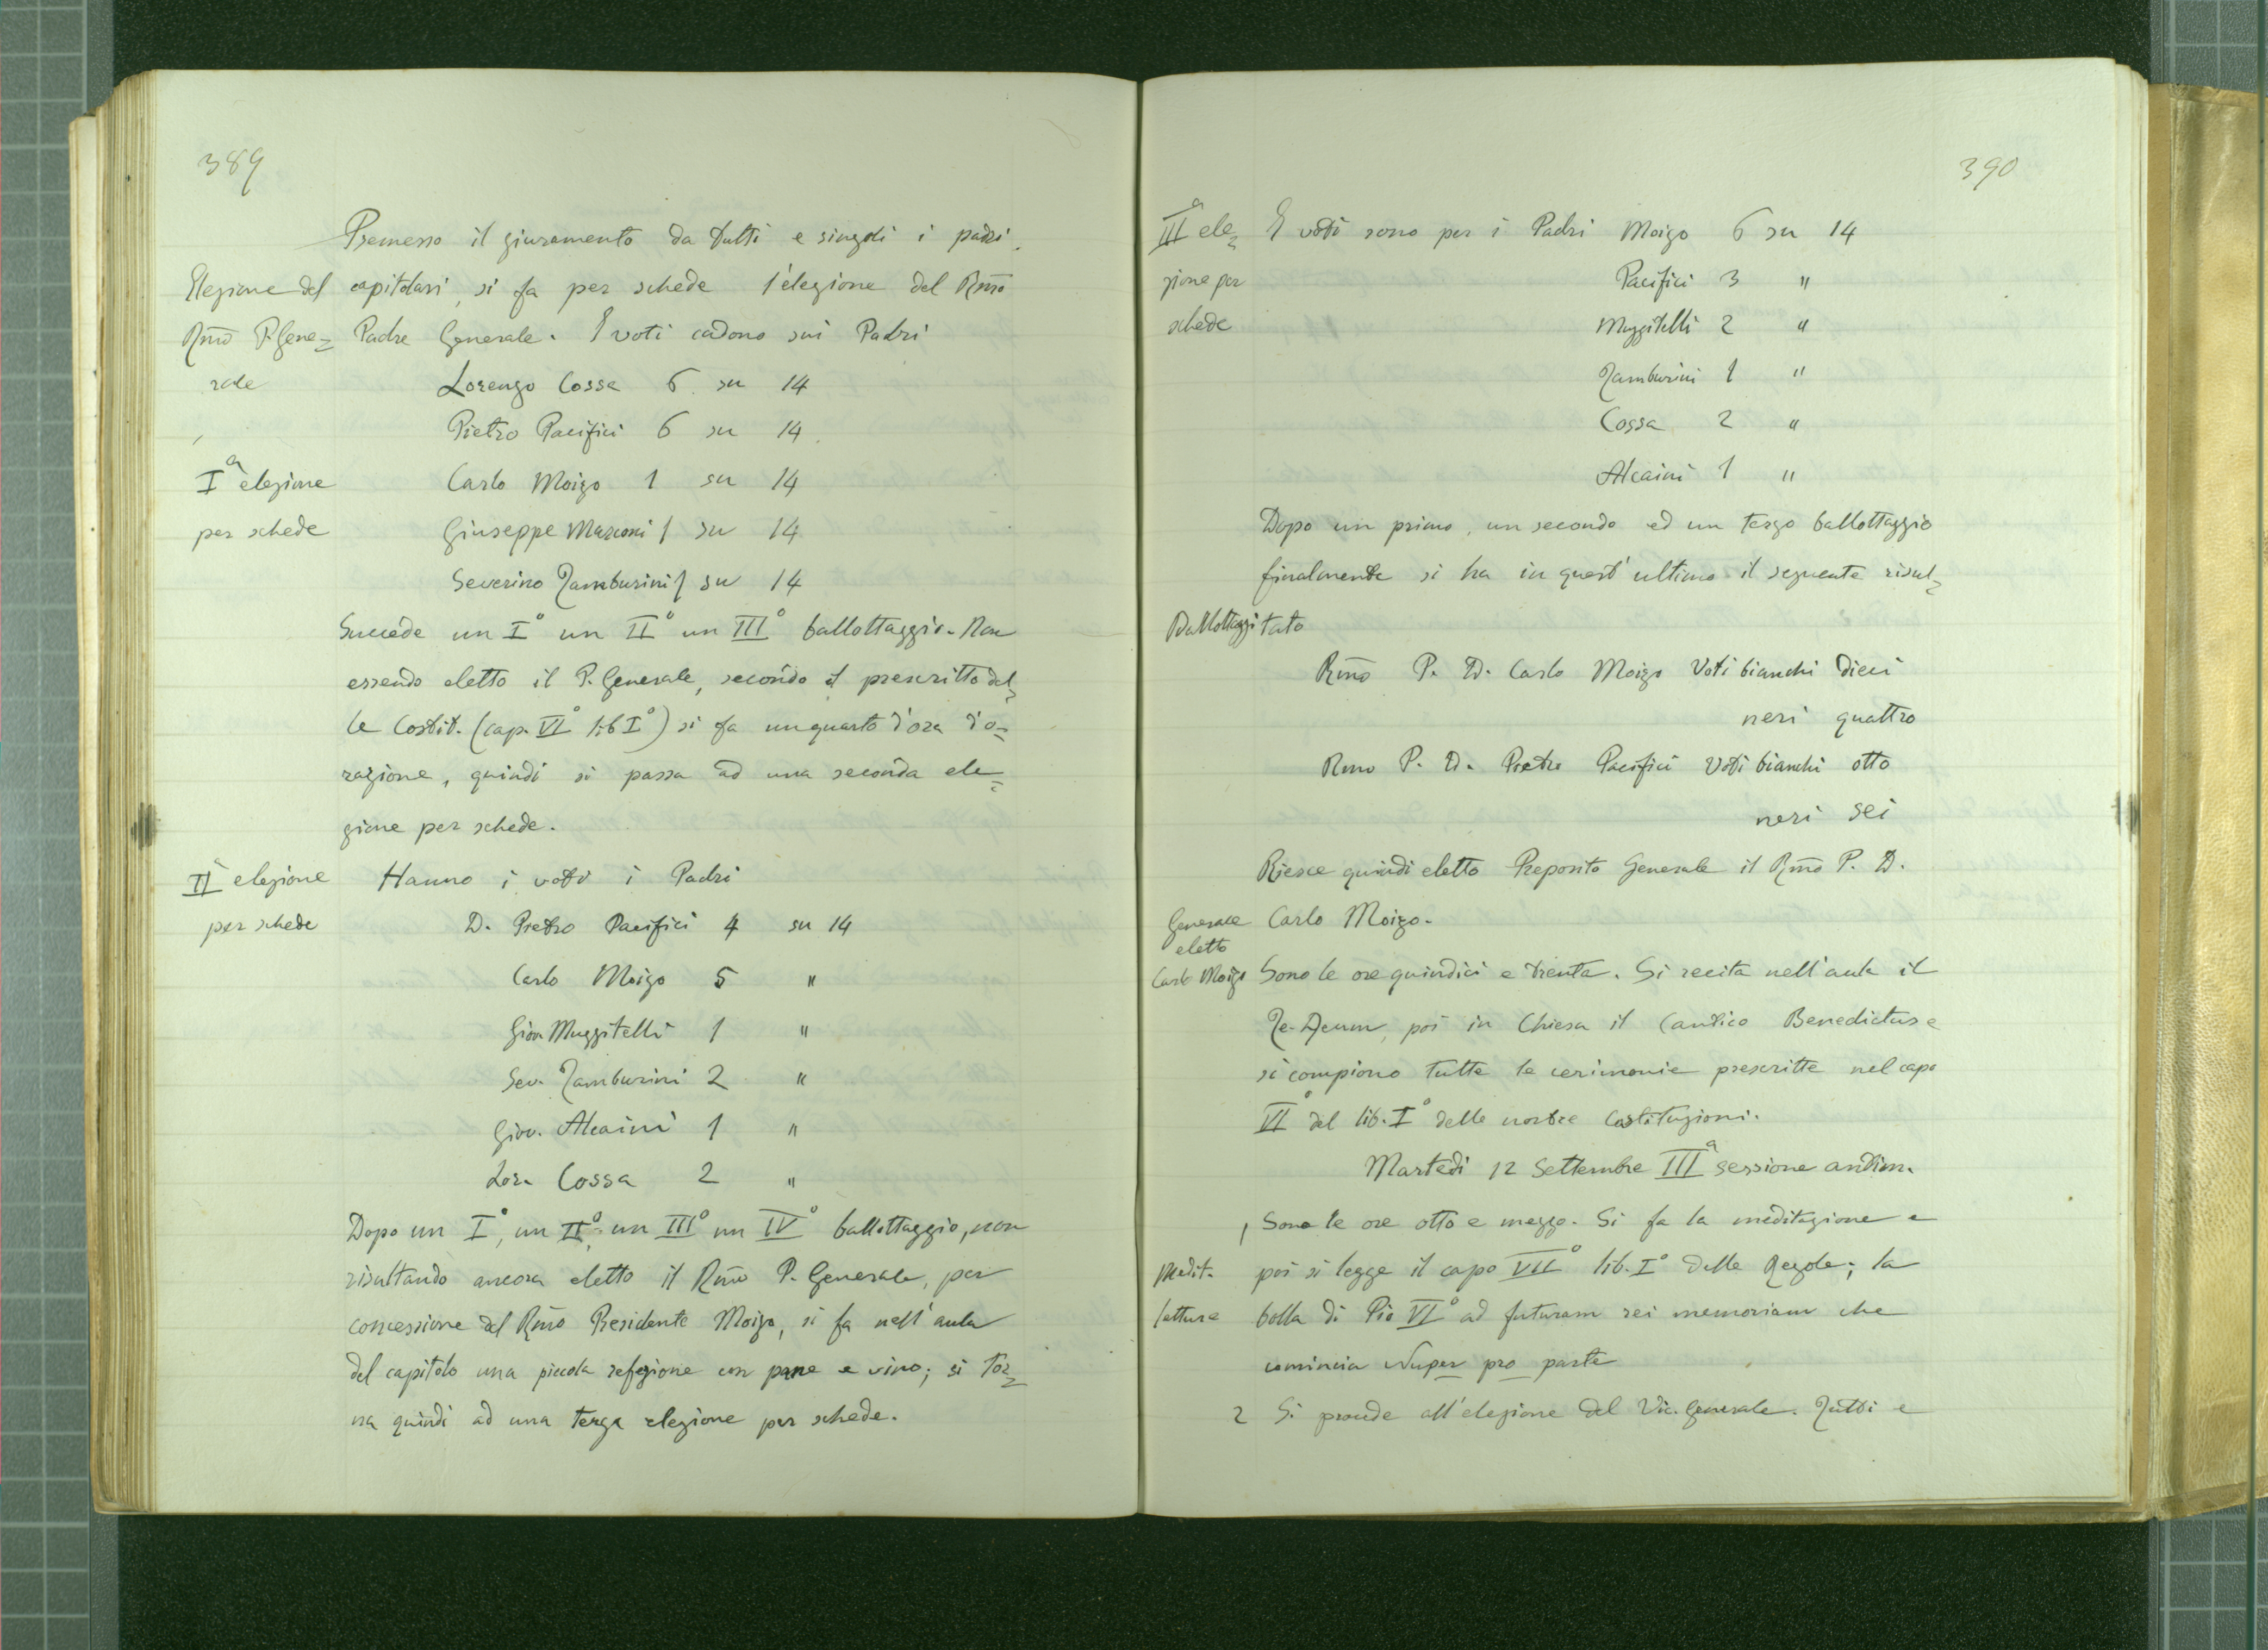 389
Premesso il giuramento da tutti e singoli i padri
Elezione del capitolari, si fa per schede l'elezione del Rm̄o
Rm̄o P. Gene= Padre Generale. I voti cadono sui Padri
rale Lorenzo Cossa 6 su 14
Pietro Pacifici 6 su 14
Iª elezione Carlo Moizo 1 su 14
per schede Giuseppe Marconi 1 su 14
Severino Tamburini 1 su 14
Succede un I° un II° un III° ballottaggio. Non
essendo eletto il P. Generale, secondo il prescritto del=
le Costit. (cap. VI° lib I°) si fa un quarto d'ora d'o=
razione, quindi si passa ad una seconda ele=
zione per schede.
II elezione Hanno i voti i Padri
per schede D. Pietro Pacifici 4 su 14
Carlo Moizo 5 "
Giov. Muzzitelli 1 "
Sev. Tamburini 2 "
Giov. Alcaini 1 "
Lor. Cossa 2 "
Dopo un I°, un II°, un III° un IV° ballottaggio, non
risultando ancora eletto il Rm̄o P. Generale, per
concessione del Rm̄o Presidente Moizo, si fa nell'aula
del capitolo una piccola refezione con pane e vino; si tor=
na quindi ad una terza elezione per schede.
390
IIIª ele= I voti sono per i Padri Moizo 6 su 14
zione per Pacifici 3 "
schede Muzzitelli 2 "
Tamburini 1 "
Cossa 2 "
Alcaini 1 "
Dopo un primo, un secondo ed un terzo ballottaggio
finalmente si ha in quest'ultimo il seguente risul=
Ballottaggi tato
Rm̄o P. D. Carlo Moizo Voti bianchi dieci
neri quattro
Rmo P. D. Pietro Pacifici Voti bianchi otto
neri sei
Riesce quindi eletto Preposito Generale il Rm̄o P. D.
Generale Carlo Moizo.
eletto
Carlo Moizo Sono le ore quindici e trenta. Si recita nell'aula il
Te-Deum, poi in Chiesa il Cantico Benedictus e
si compiono tutte le cerimonie prescritte nel capo
VI° del lib. I° delle nostre Costituzioni.
Martedì 12 Settembre IIIª sessione antim.
1 Sono le ore otto e mezzo. Si fa la meditazione e
Medit. poi si legge il capo VII° lib. I° delle Regole; la
letture bolla di Pio VI° ad futuram rei memoriam che
comincia Nuper pro parte
2 Si procede all'elezione del Vic. Generale. Tutti e